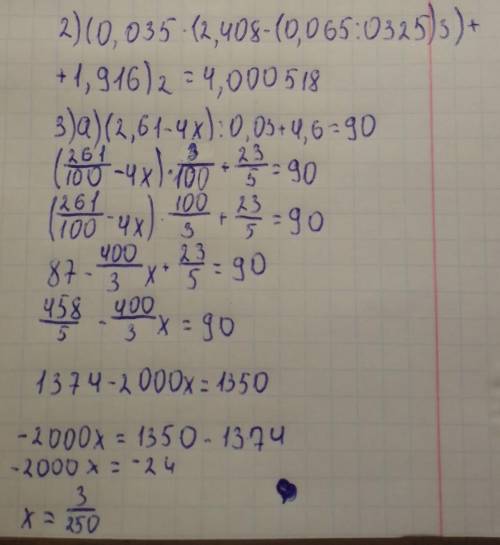 2)(0,035·(2,408-(0,065:0325)3)+
+1,916)2=4,000518
3)a)(2,61-4x):0,03+4,6=90
(261/100-4x)·3/100+23/5=90
(261/100-4x)·100/3+23/5=90
87-400/3x+23/5=90
458/5-400/3x=90
1374-2000x=1350
-2000x=1350-1374
-2000x=-24
x=3/250